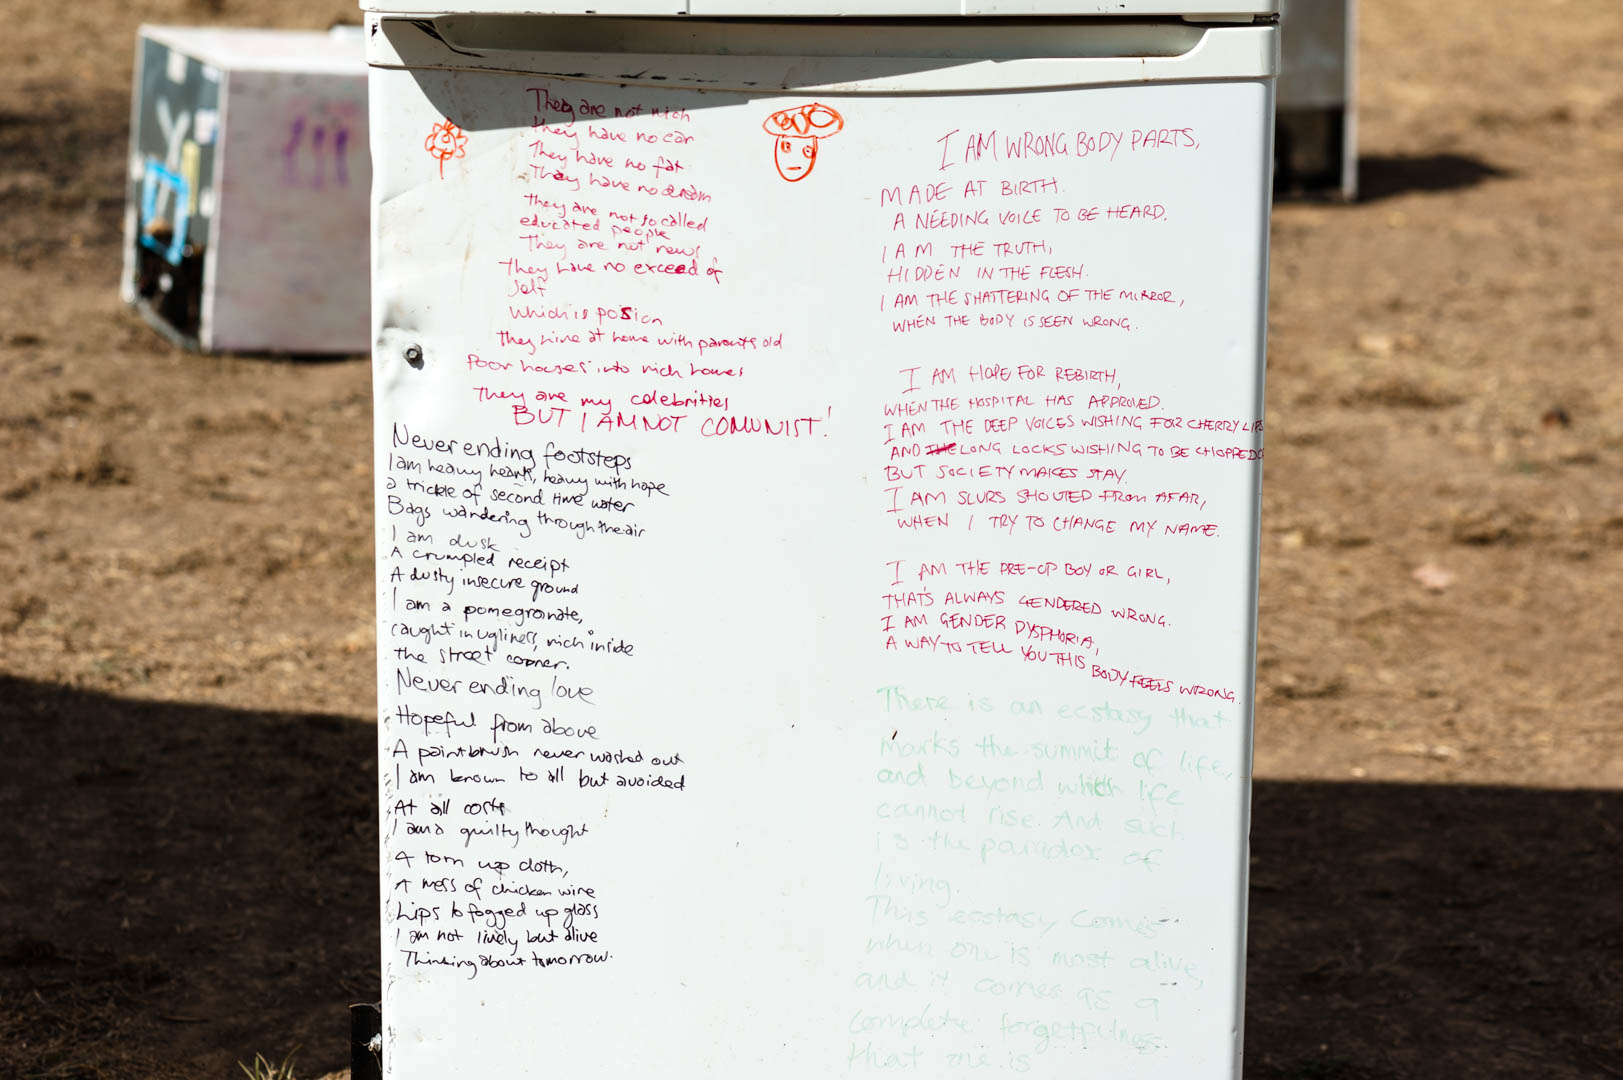 They are not rich
They have no car
They have no fat
They have no dream
They are not so called
educated people
They are not news
They have no exceed of
self
which is posion
They live at home with parents old
Poor houses into rich homes
They are my celebrities
BUT I AM NOT COMUNIST!
Never ending footsteps
I am heavy heart, heavy with hope
a trickle of second time water
Bags wandering through the air
I am dusk
A crumpled receipt
A dusty insecure ground
I am a pomegranate,
caught in ugliness, rich inside
the street corner.
Never ending love
Hopeful from above
A paintbrush never washed out
I am known to all but avoided
At all costs
I am a guilty thought
A torn up cloth,
A mess of chicken wire
Lips to fogged up glass
I am not lively but alive
Thinking about tomorrow.
I AM WRONG BODY PARTS,
MADE AT BIRTH.
A NEEDING VOICE TO BE HEARD.
I AM THE TRUTH,
HIDDEN IN THE FLESH.
I AM THE SHATTERING OF THE MIRROR,
WHEN THE BODY IS SEEN WRONG.
I AM HOPE FOR REBIRTH,
WHEN THE HOSPITAL HAS APPROVED.
I AM THE DEEP VOICES WISHING FOR CHERRY LIPS
AND LONG LOCKS WISHING TO BE CHOPPED
BUT SOCIETY MAKES STAY.
I AM SLURS SHOUTED FROM AFAR,
WHEN I TRY TO CHANGE MY NAME.
I AM THE PRE-OP BOY OR GIRL,
THAT'S ALWAYS GENDERED WRONG.
I AM GENDER DYSPHORIA,
A WAY TO TELL YOU THIS BODY FEELS WRONG.
There is an ecstasy that
marks the summit of life,
and beyond which life
cannot rise. And such
is the paradox of
living.
This ecstasy comes
when one is most alive,
and it comes as a
complete forgetfulness
that one is